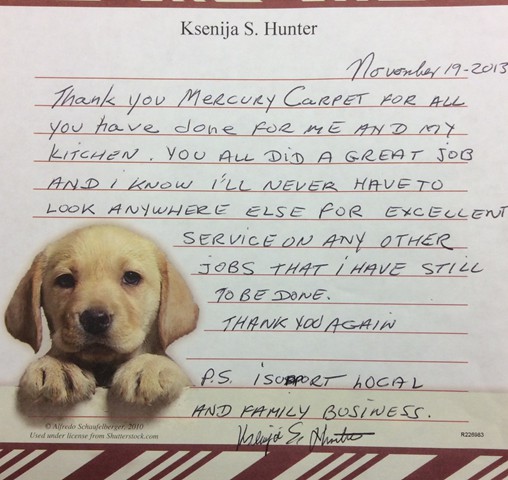 Ksenija S. Hunter
November 19-2013
Thank you Mercury Carpet for all
you have done for me and my
kitchen. You all did a great job
and i know i'll never have to
look anywhere else for excellent
service on any other
jobs that i have still
to be done.
Thank you again
P.S. i suport local
and family business.
Ksenija S. Hunter
© Alfredo Schaufelberger, 2010
Used under license from Shutterstock.com
R226983